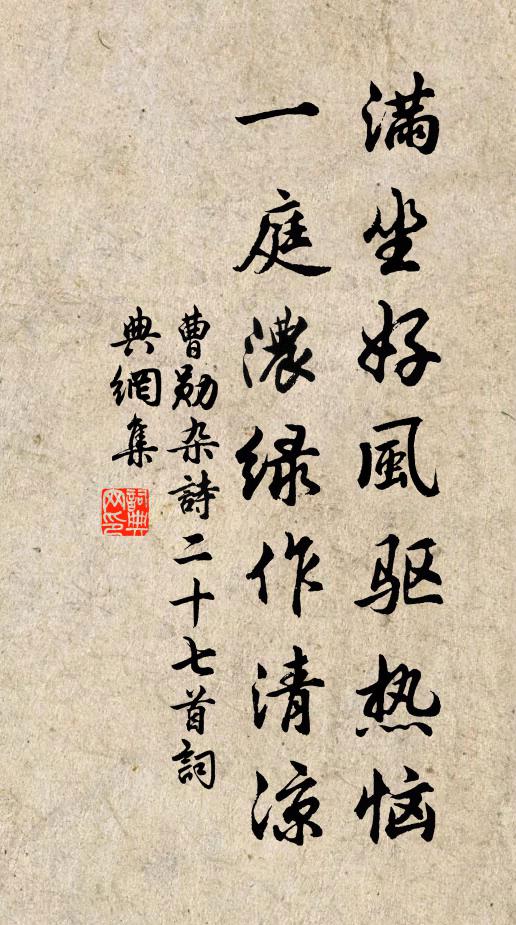 满坐好風驱热恼
一庭濃绿作清凉
曹勋杂詩二十七首詞
典網集
詞典
网印